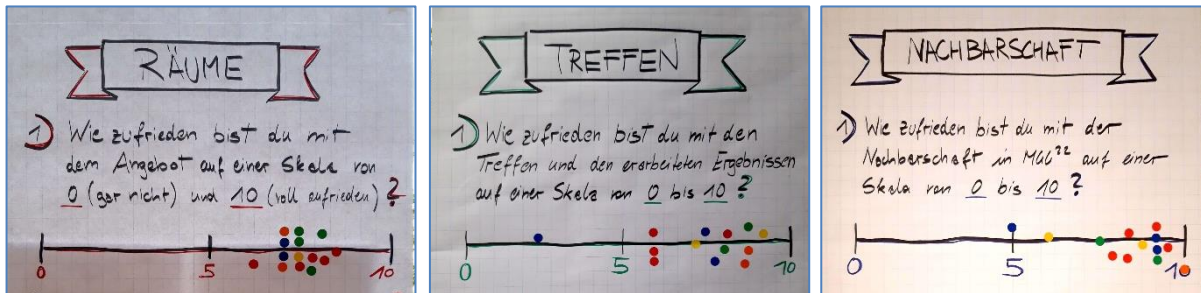 RÄUME
1) Wie zufrieden bist du mit
dem Angebot auf einer Skala von
0 (gar nicht) und 10 (voll zufrieden)?
0 5 10
TREFFEN
1) Wie zufrieden bist du mit den
Treffen und den erarbeiteten Ergebnissen
auf einer Skala von 0 bis 10?
0 5 10
NACHBARSCHAFT
1) Wie zufrieden bist du mit der
Nachbarschaft in MGG²² auf einer
Skala von 0 bis 10?
0 5 10